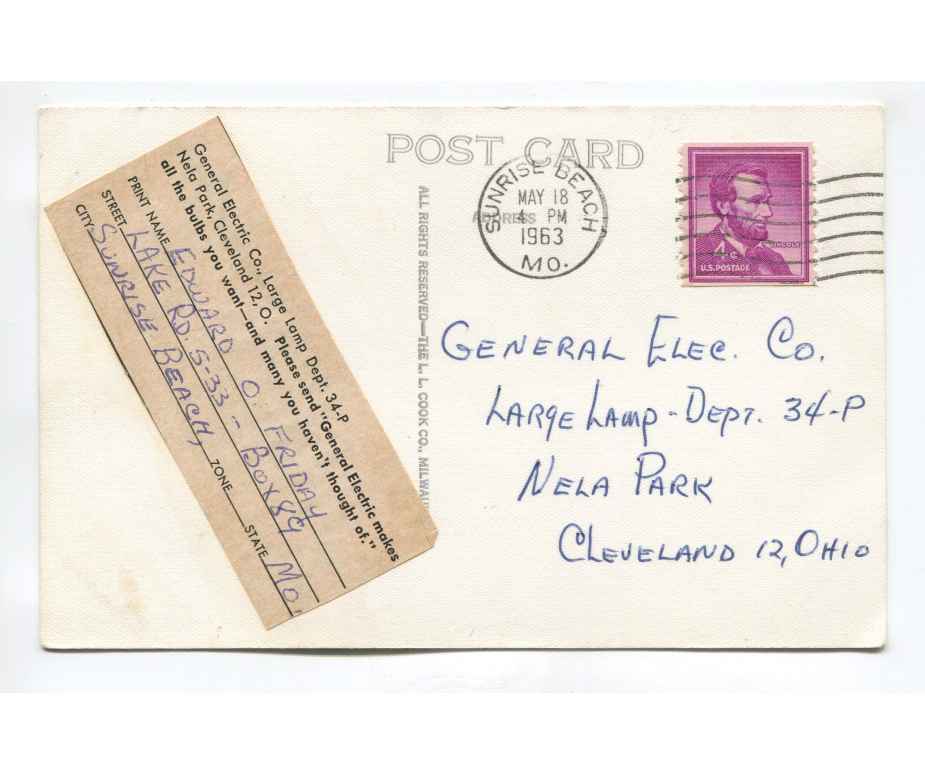 General Electric Co., Large Lamp Dept. 34-P
Nela Park, Cleveland 12, O. Please send "General Electric makes
all the bulbs you want—and many you haven't thought of."
PRINT NAME EDWARD O. FRIDAY
STREET LAKE RD. 5-33 - BOX 89
CITY SUNRISE BEACH, ZONE STATE MO.
POST CARD
ADDRESS
ALL RIGHTS RESERVED—THE L. L. COOK CO., MILWAU
SUNRISE BEACH
MAY 18
4 PM
1963
MO.
LINCOLN
4¢
U.S. POSTAGE
GENERAL ELEC. CO.
LARGE LAMP - DEPT. 34-P
NELA PARK
CLEVELAND 12, OHIO